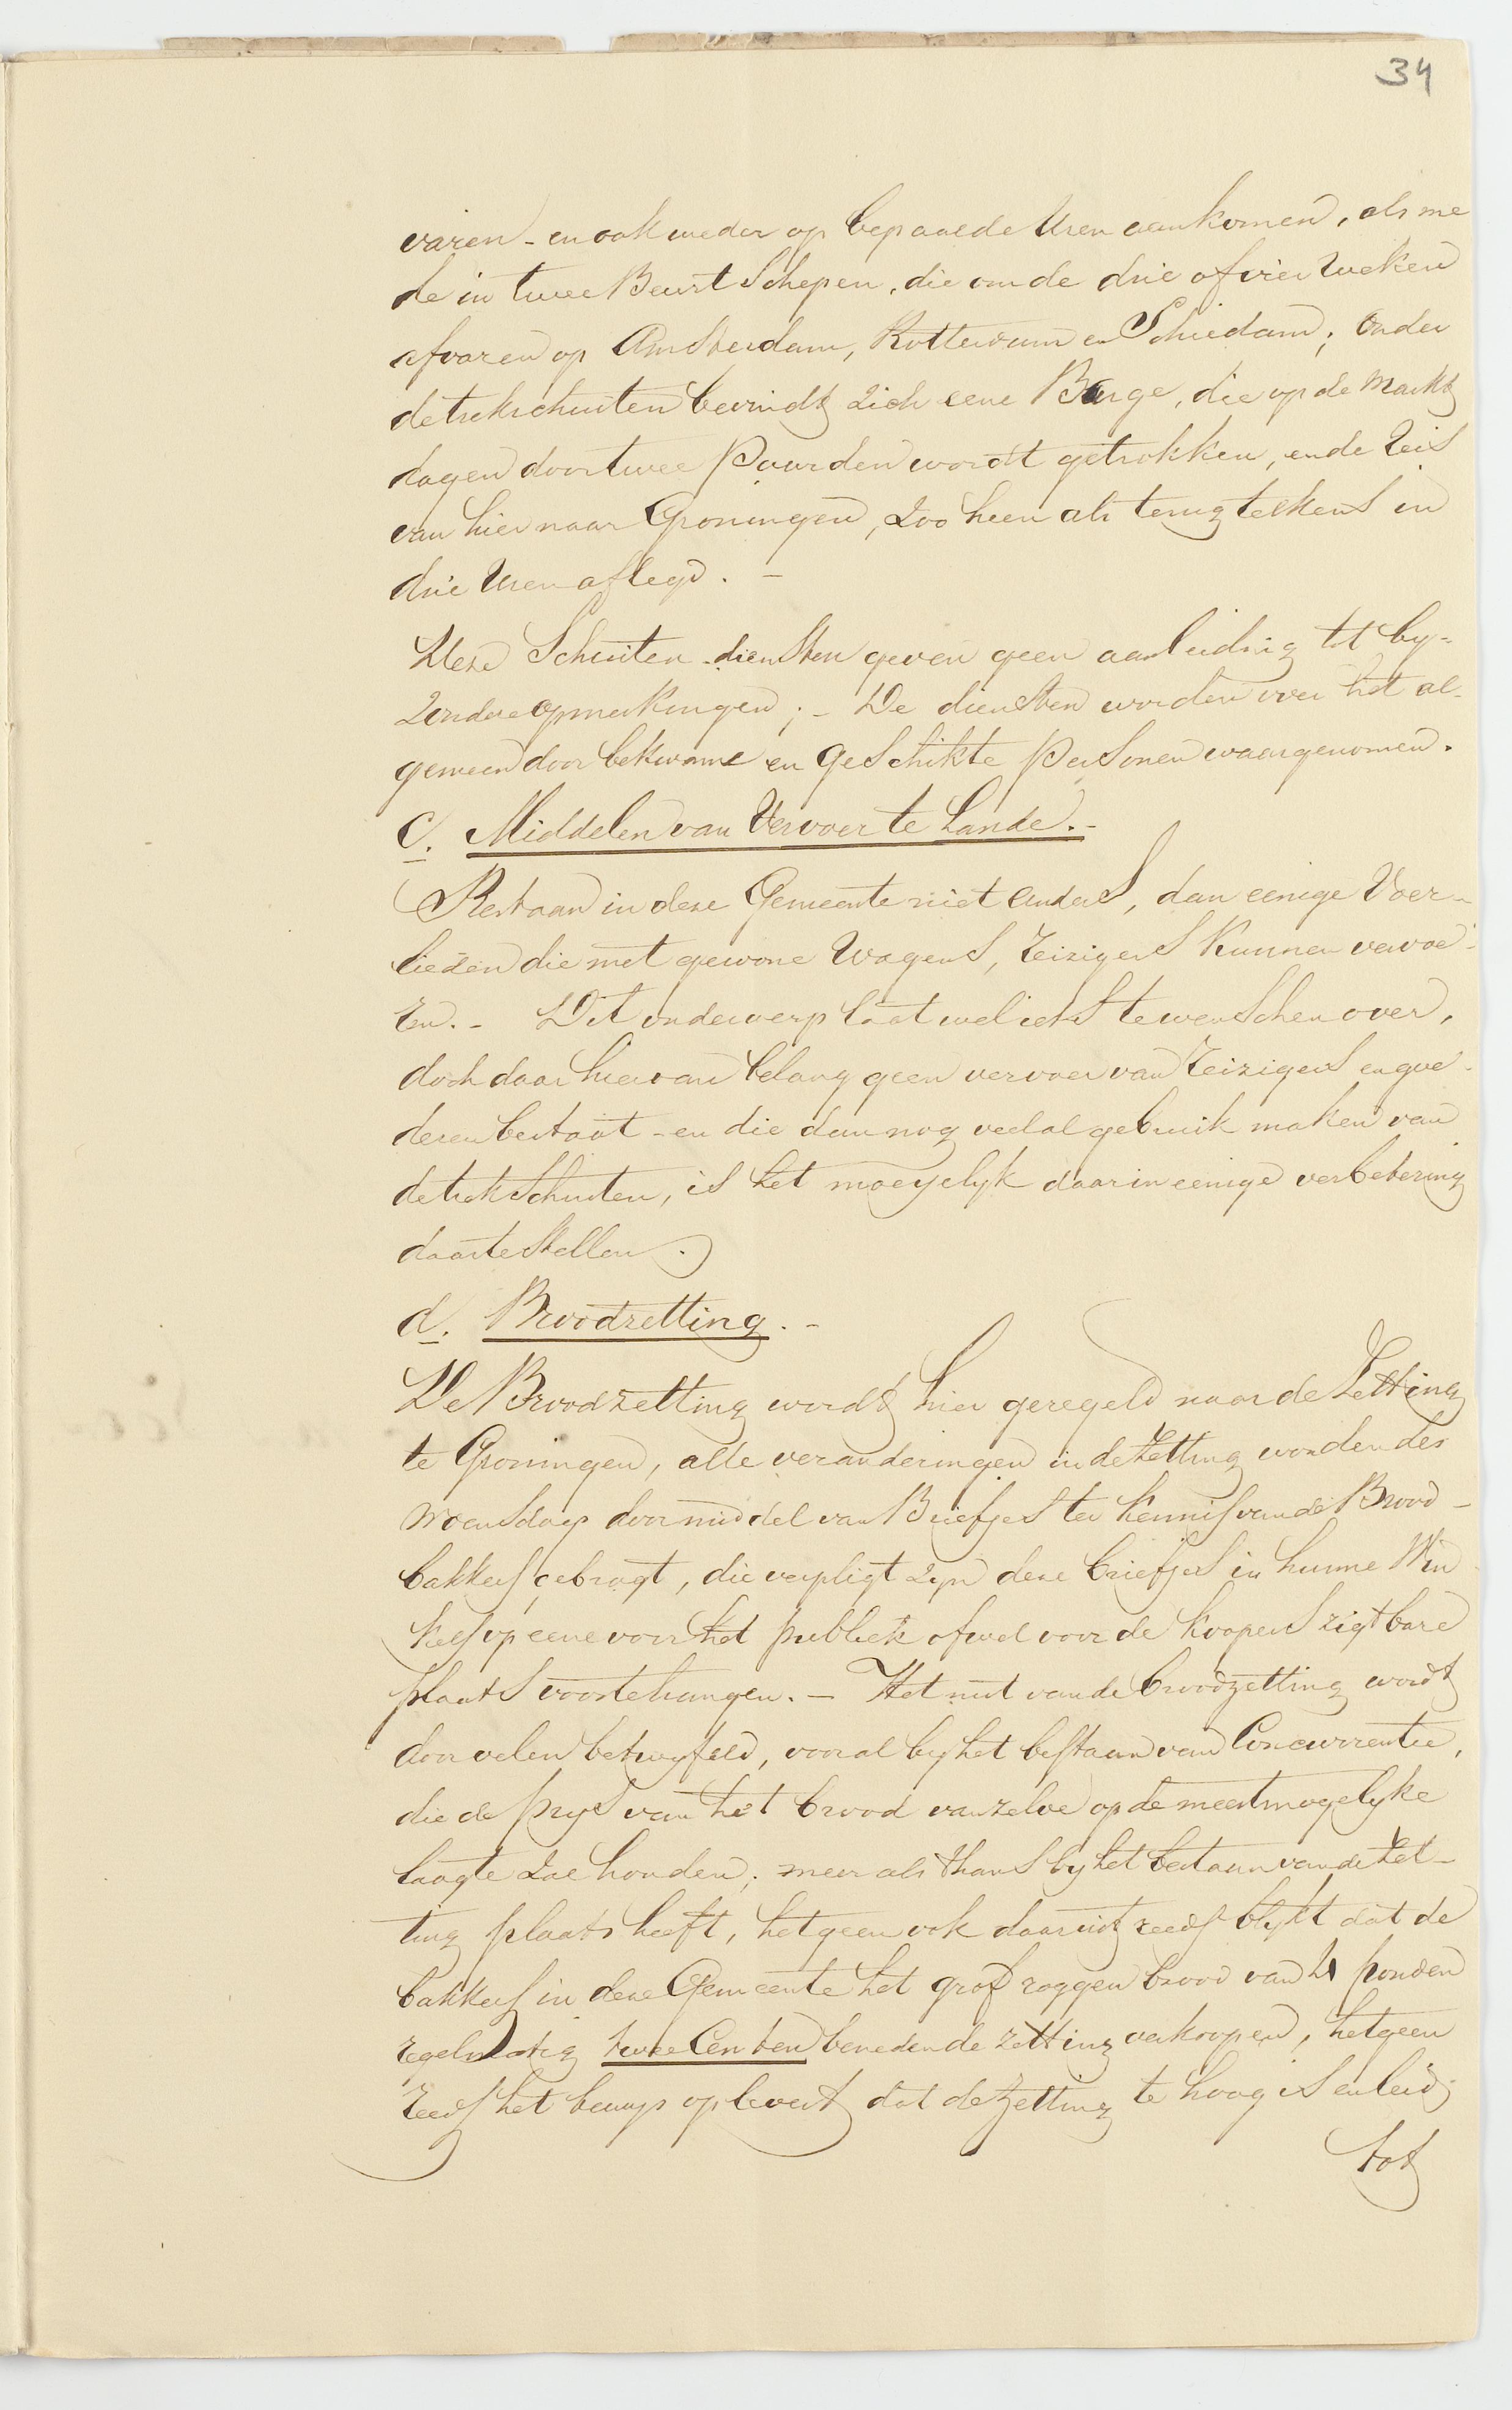 34
varen – en ook weder op bepaalde Uren aankomen, als me
de in twee Beurt Schepen, die om de drie of vier Weken
afvaren op Amsterdam, Rotterdam en Schiedam; Onder
de trekschuiten bevindt zich eene Barge, die op de Markt
dagen door twee Paarden wordt getrokken, en de reis
van hier naar Groningen, zoo heen als terug telkens in
drie Uren aflegd. –
Deze Schuiten-diensten geven geen aanleiding tot by=
zondere opmerkingen; – De diensten worden over het al-
gemeen door bekwame en geschikte Personen waargenomen.
C. Middelen van Vervoer te Lande. –
Bestaan in deze Gemeente niet anders, dan eenige Voer-
lieden die met gewone Wagens, reizigers kunnen vervoe-
ren. – Dit onderwerp laat wel iets te wenschen over,
doch daar hier van belang geen vervoer van reizigers en goe-
deren bestaat – en die dan nog veelal gebruik maken van
de trekschuiten, is het moeyelyk daarin eenige verbetering
daartestellen.
d. Broodzetting. –
De Broodzetting wordt hier geregeld naar de Zetting
te Groningen, alle veranderingen in de Zetting worden des
Woensdags door middel van Briefjes ter kennis van de Brood-
bakkers gebragt, die verpligt zyn deze briefjes in hunne Win
kels op eene voor het publiek ofwel voor de koopers zigtbare
plaats voortehangen. – Het nut van de broodzetting wordt
door velen betwyfeld, vooral by het bestaan van Concurrentie,
die de prys van het brood vanzelve op de meestmogelyke
laagte zoe houden; meer als thans by het bestaan van de Zet-
ting plaats heeft, hetgeen ook daaruit reeds blykt dat de
bakkers in deze Gemeente het grof roggen brood van ponden
regelmatig twee Centen beneden de zetting verkoopen, hetgeen
reeds het bewys oplevert dat de zetting te hoog is en leid
tot